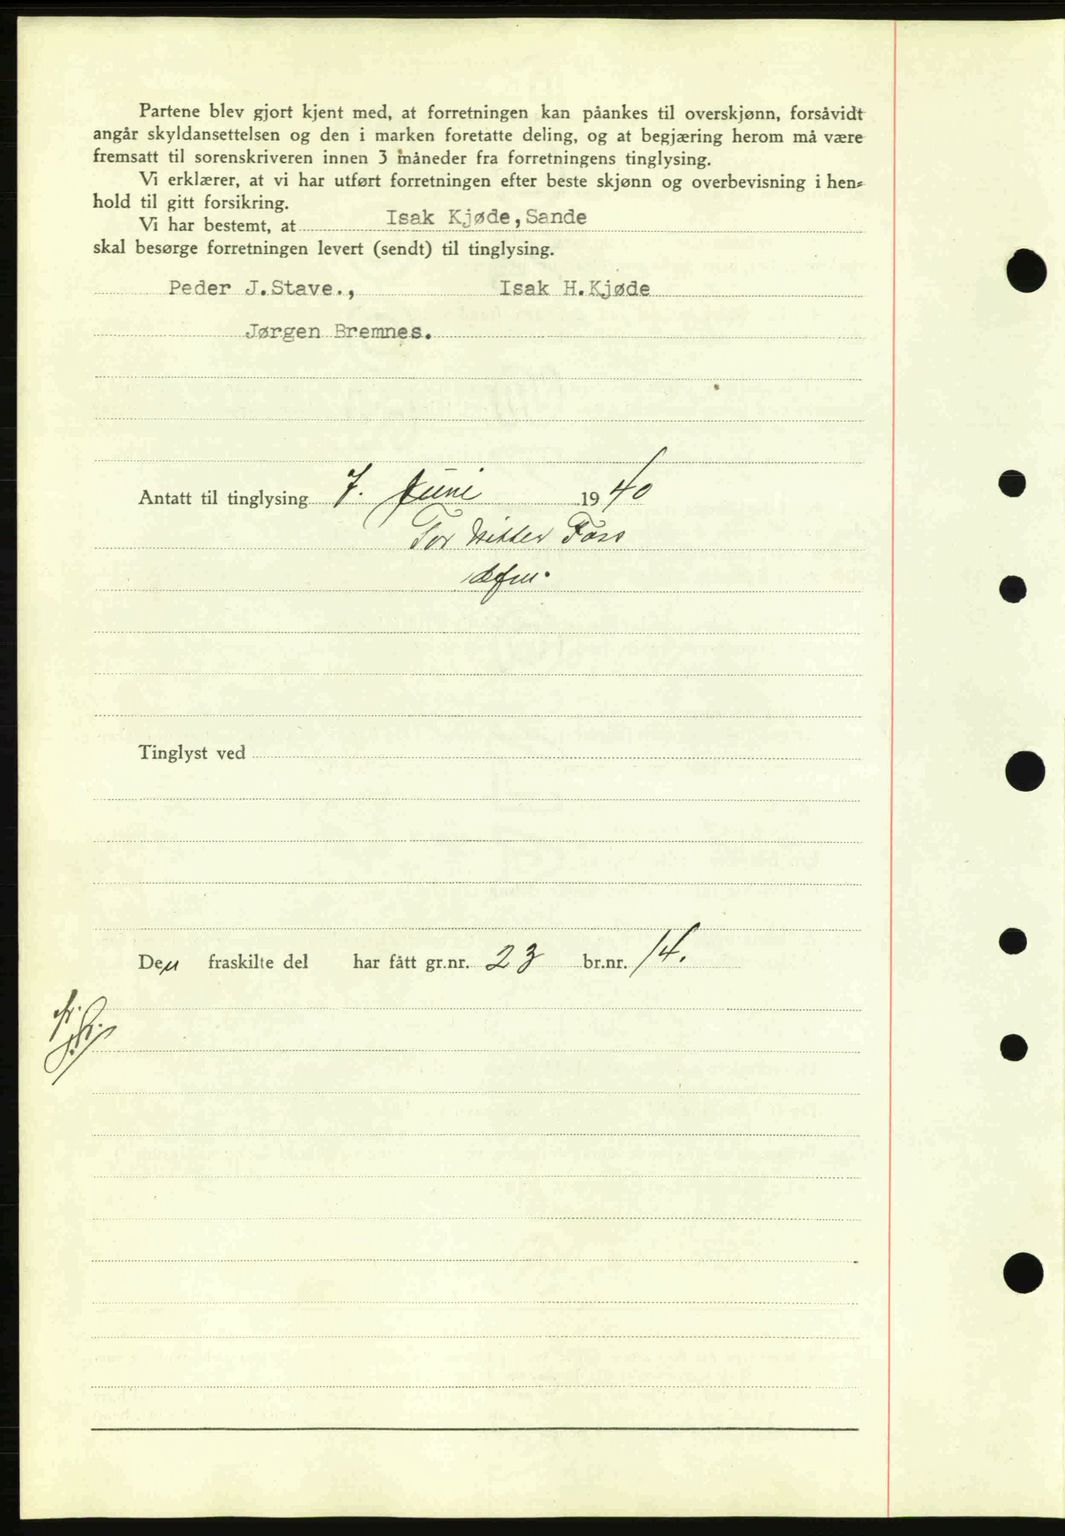 Partene blev gjort kjent med, at forretningen kan påankes til overskjønn, forsåvidt
angår skyldansettelsen og den i marken foretatte deling, og at begjæring herom må være
fremsatt til sorenskriveren innen 3 måneder fra forretningens tinglysing.
Vi erklærer, at vi har utført forretningen efter beste skjønn og overbevisning i hen-
hold til gitt forsikring.
Vi har bestemt, at Isak Kjøde, Sande
skal besørge forretningen levert (sendt) til tinglysing.
Peder J. Stave., Isak H. Kjøde
Jørgen Bremnes.
Antatt til tinglysing 7. Juni 1940
Tor Foss
Tinglyst ved
Den fraskilte del har fått gr.nr. 23 br.nr. 14.